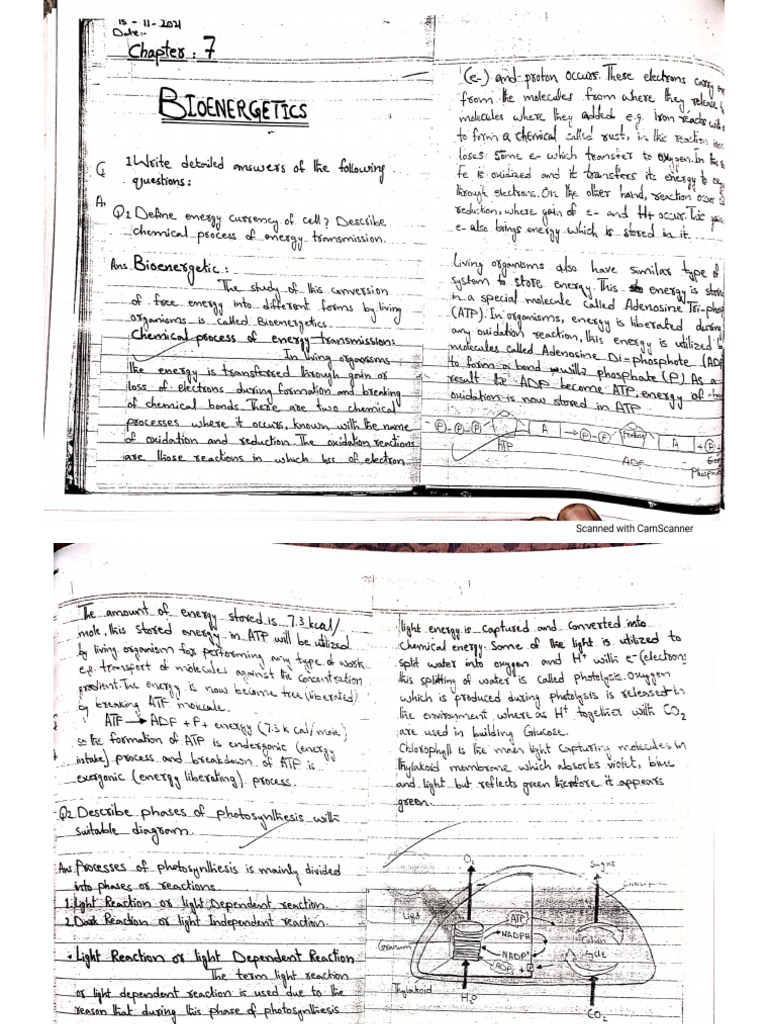 15-11-2021
Date:-
Chapter: 7
BIOENERGETICS
Q 1. Write detailed answers of the following
questions:
A.
Q1 Define energy currency of cell? Describe
chemical process of energy transmission.
Ans. Bioenergetic:
The study of this conversion
of free energy into different forms by living
organisms is called Bioenergetics.
Chemical process of energy transmission:
In living organisms
the energy is transferred through gain or
loss of electrons during formation and breaking
of chemical bonds. There are two chemical
processes where it occurs, known with the name
of oxidation and reduction. The oxidation reactions
are those reactions in which loss of electron
(e-) and proton occurs. These electrons carry
from the molecules from where they release
molecules where they added e.g. iron reacts with
to form a chemical called rust, in this reaction
loses some e- which transfer to oxygen. In this
Fe is oxidized and it transfers its energy to
through electrons. On the other hand, reaction occur
reduction, where gain of e- and H+ occur. This
e- also brings energy which is stored in it.
Living organisms also have similar type of
system to store energy. This energy is
in a special molecule called Adenosine Tri-
(ATP). In organisms, energy is liberated during
any oxidation reaction, this energy is utilized
molecules called Adenosine Di-phosphote
to form a bond with phosphate (P) As a
result the ADP become ATP, energy of
oxidation is now stored in ATP
P-P-P A → P-P A + P
ATP ADP
Scanned with CamScanner
The amount of energy stored is 7.3 kcal/
mole, this stored energy in ATP will be utilized
by living organism for performing any type of work
e.g. transport of molecules against the concentration
gradient. This energy is now become free (liberated)
by breaking ATP molecule.
ATP → ADP + P + energy (7.3 k cal/mole)
so the formation of ATP is endergonic (energy
intake) process and breakdown of ATP is
exergonic (energy liberating) process.
Q2 Describe phases of photosynthesis with
suitable diagram.
Ans. Processes of photosynthesis is mainly divided
into phases or reactions
1. Light Reaction or light Dependent reaction.
2. Dark Reaction or light Independent reaction.
• Light Reaction or light Dependent Reaction
The term light reaction
or light dependent reaction is used due to the
reason that during this phase of photosynthesis
light energy is captured and converted into
chemical energy. Some of the light is utilized to
split water into oxygen and H+ with e- (electrons
this splitting of water is called photolysis. Oxygen
which is produced during photolysis is released in
the environment, where as H+ together with CO2
are used in building Glucose.
Chlorophyll is the main light capturing molecules in
thylakoid membrane which absorbs violet, blue
and light but reflects green therefore it appears
green.
O2
Sugar
Light
ATP
NADPH
Calvin
Cycle
Granum
NADP+
ADP +
Thylakoid
H2O
CO2